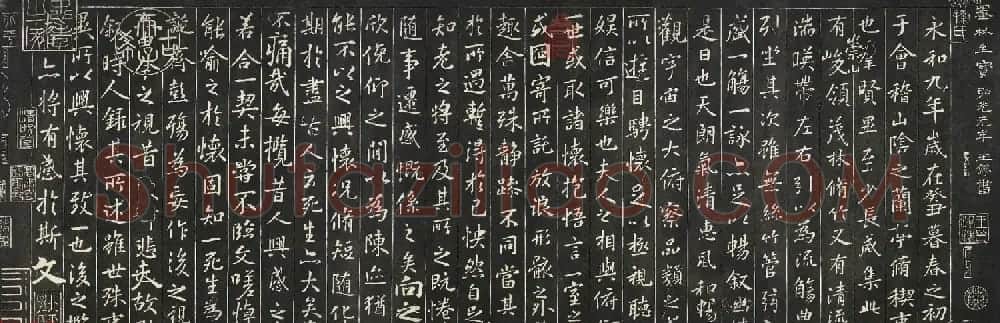 永和九年歲在癸丑暮春之初
于會稽山陰之蘭亭脩稧
也群賢畢至少長咸集此
崇山
有峻領茂林脩竹又有清流
湍暎帶左右引以為流觴
列坐其次雖無絲竹管弦
盛一觴一詠亦足以暢敘幽
是日也天朗氣清惠風和暢
觀宇宙之大俯察品類之
所以遊目騁懷足以極視聽
娛信可樂也夫人之相與俯
一世或取諸懷抱悟言一室
或因寄所託放浪形骸之外
趣舍萬殊靜躁不同當其
於所遇暫得於己怏然自足
知老之將至及其所之既惓
隨事遷感慨係之矣向之
欣俛仰之間以為陳迹猶
能不以之興懷況脩短隨化
期於盡古人云死生亦大矣
不痛哉每攬昔人興感之
若合一契未嘗不臨文嗟悼
能喻之於懷固知一死生為
誕齊彭殤為妄作後之視
之視昔悲夫故
敘時人錄其所述雖世殊事
異所以興懷其致一也後之攬
亦將有感於斯文
Shufaziliao.com